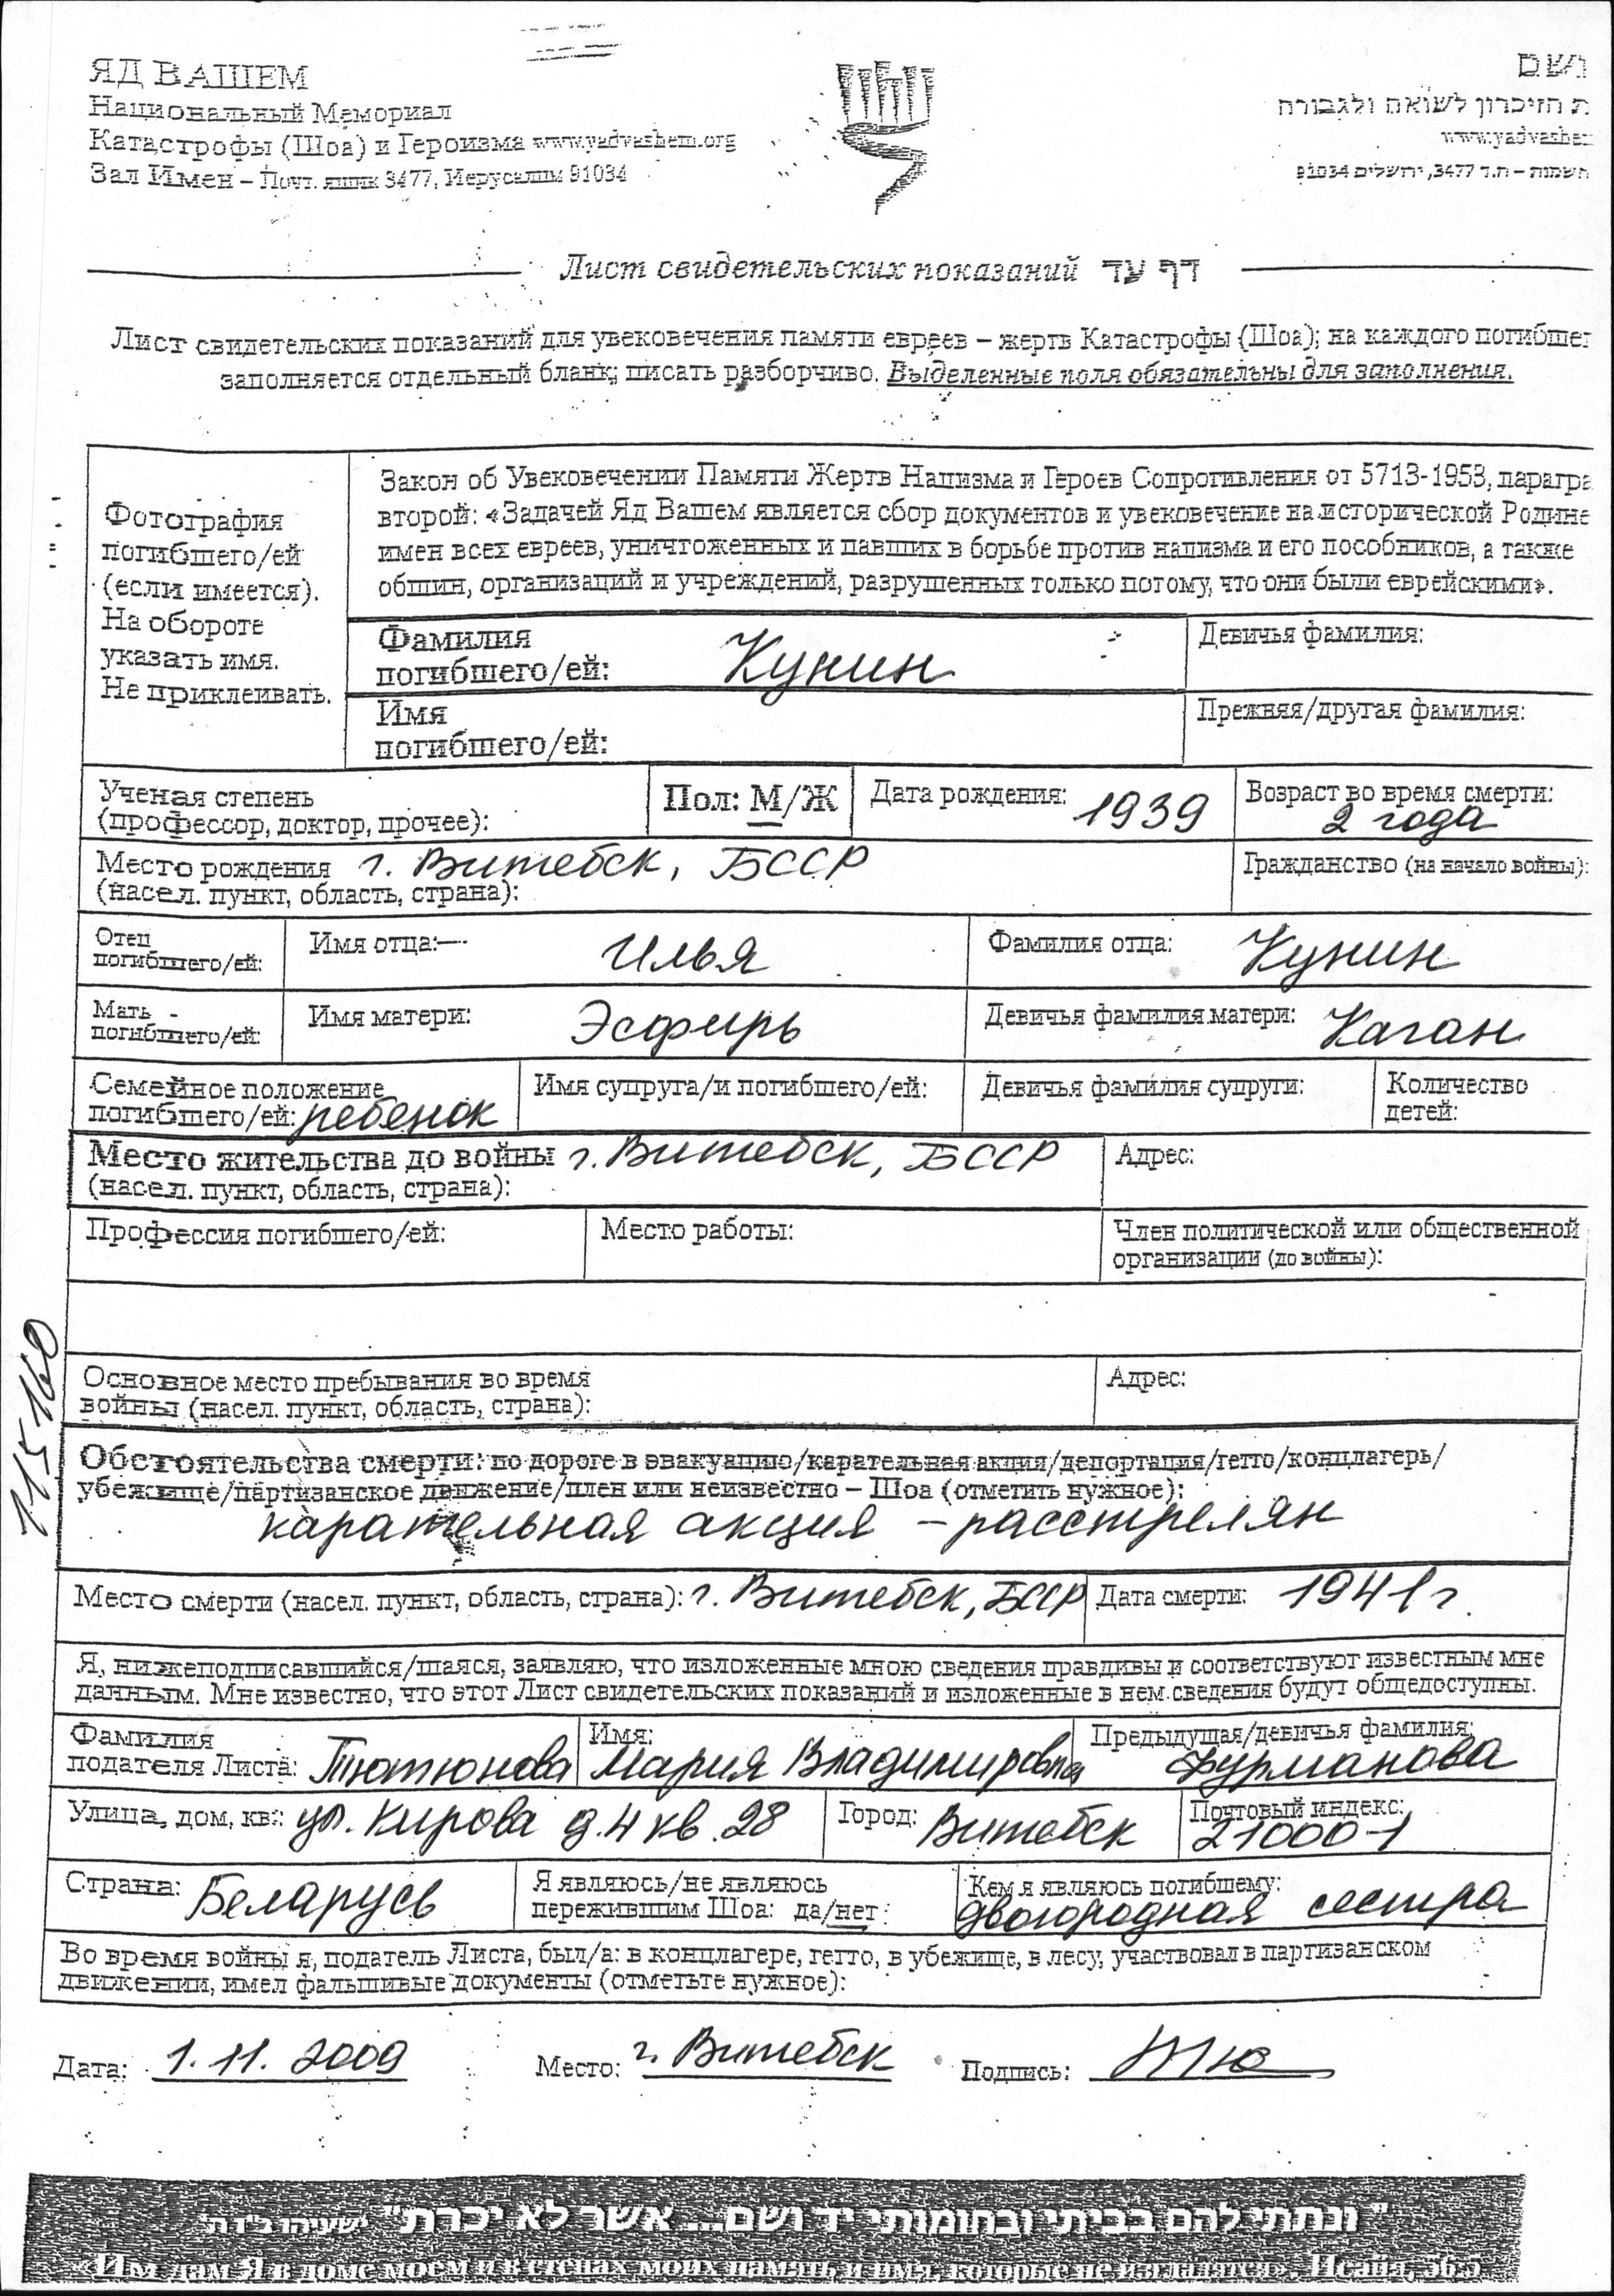 ЯД ВАШЕМ
Национальный Мемориал
Катастрофы (Шоа) и Героизма www.yadvashem.org
Зал Имен – Почт. ящик 3477, Иерусалим 91034
ושם
ת הזיכרון לשואה ולגבורה
www.yadvashe
השמות – ת.ד 3477, ירושלים 91034
Лист свидетельских показаний דף עד
Лист свидетельских показаний для увековечения памяти евреев – жертв Катастрофы (Шоа); на каждого погибшег
заполняется отдельный бланк; писать разборчиво. Выделенные поля обязательны для заполнения.
Фотография
погибшего/ей
(если имеется).
На обороте
указать имя.
Не приклеивать.
Закон об Увековечении Памяти Жертв Нацизма и Героев Сопротивления от 5713-1953, парагра
второй: «Задачей Яд Вашем является сбор документов и увековечение на исторической Родине
имен всех евреев, уничтоженных и павших в борьбе против нацизма и его пособников, а также
общин, организаций и учреждений, разрушенных только потому, что они были еврейскими».
Фамилия
погибшего/ей: Кунин
Девичья фамилия:
Имя
погибшего/ей:
Прежняя/другая фамилия:
Ученая степень
(профессор, доктор, прочее):
Пол: М/Ж
Дата рождения: 1939
Возраст во время смерти:
2 года
Место рождения г. Витебск, БССР
(насел. пункт, область, страна):
Гражданство (на начало войны):
Отец
погибшего/ей:
Имя отца: Илья
Фамилия отца: Кунин
Мать
погибшего/ей:
Имя матери: Эсфирь
Девичья фамилия матери: Каган
Семейное положение
погибшего/ей: ребенок
Имя супруга/и погибшего/ей:
Девичья фамилия супруги:
Количество
детей:
Место жительства до войны г. Витебск, БССР
(насел. пункт, область, страна):
Адрес:
Профессия погибшего/ей:
Место работы:
Член политической или общественной
организации (до войны):
Основное место пребывания во время
войны (насел. пункт, область, страна):
Адрес:
115160
Обстоятельства смерти: по дороге в эвакуацию/карательная акция/депортация/гетто/концлагерь/
убежище/партизанское движение/плен или неизвестно – Шоа (отметить нужное):
карательная акция – расстрелян
Место смерти (насел. пункт, область, страна): г. Витебск, БССР
Дата смерти: 1941 г.
Я, нижеподписавшийся/шаяся, заявляю, что изложенные мною сведения правдивы и соответствуют известным мне
данным. Мне известно, что этот Лист свидетельских показаний и изложенные в нем сведения будут общедоступны.
Фамилия
подателя Листа: Тютюнова
Имя:
Мария Владимировна
Предыдущая/девичья фамилия:
Фурманова
Улица, дом, кв.: ул. Кирова д. 4 кв. 28
Город: Витебск
Почтовый индекс:
210001
Страна: Беларусь
Я являюсь/не являюсь
пережившим Шоа: да/нет
Кем я являюсь погибшему:
двоюродная сестра
Во время войны я, податель Листа, был/а: в концлагере, гетто, в убежище, в лесу, участвовал в партизанском
движении, имел фальшивые документы (отметьте нужное):
Дата: 1.11.2009
Место: г. Витебск
Подпись: Тю
"ונתתי להם בביתי ובחומותי יד ושם... אשר לא יכרת" ישעיהו נ"ו ה'
«Им дам Я в доме моем и в стенах моих память и имя, которые не изгладятся». Исайя, 56:5